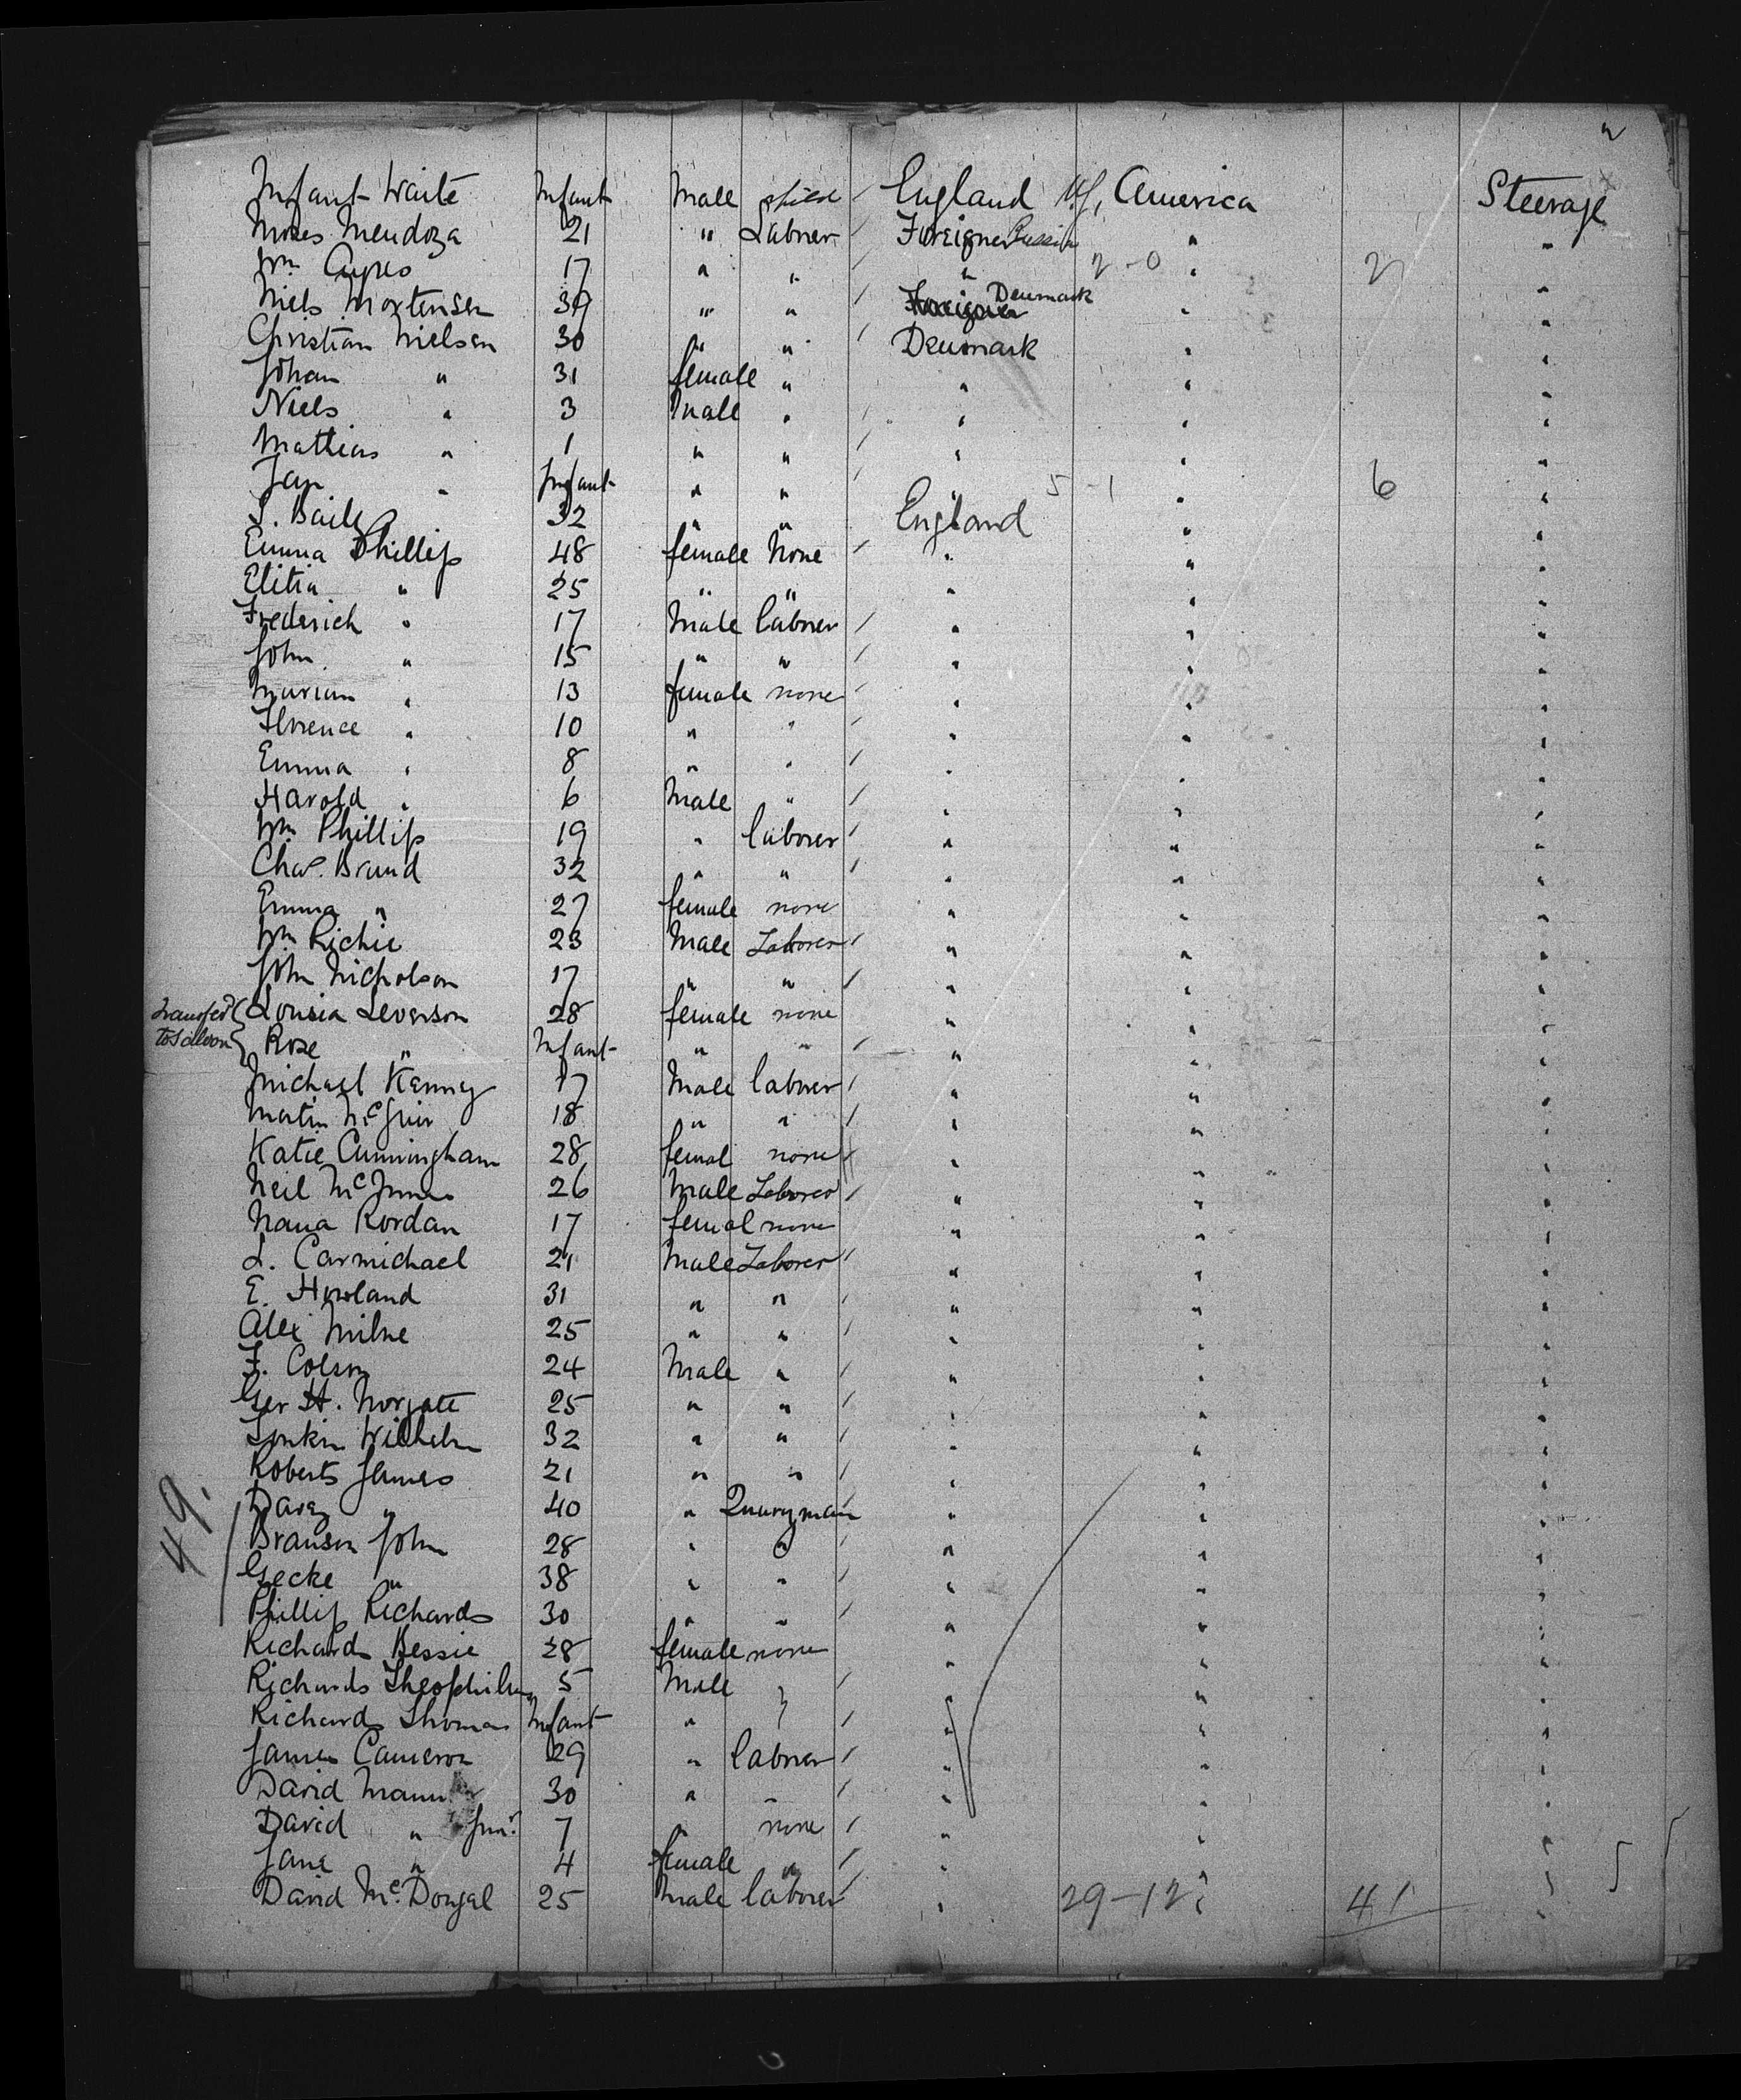 Infant Waite Infant Male child / England U.S. America Steerage
Moses Mendoza 21 " Laborer / Foreigner Russia " "
Wm Ayres 17 " " / " 2-0 " 2 "
Niels Mortensen 39 " " / Foreigner Denmark " "
Christian Nielsen 30 " " / Denmark " "
Johan " 31 female " " " "
Niels " 3 Male " / " " "
Mathias " 1 " " / " " "
Jap " Infant " " / " 5-1 " 6 "
S. Baile 32 " " England " "
Emma Phillips 48 female None / " " "
Elitia " 25 " " " " "
Frederich " 17 Male laborer / " " "
John " 15 " " / " " "
Marian " 13 female none / " " "
Florence " 10 " " / " " "
Emma " 8 " " / " " "
Harold " 6 Male " / " " "
Wm Phillips 19 " laborer / " " "
Chas. Brand 32 " " / " " "
Emma " 27 female none " " "
Wm Richie 23 Male Laborer / " " "
John Nicholson 17 " " / " " "
transfed to Saloon { Lousia Leverson 28 female none " " "
Rose " Infant " " / " " "
Michael Kenney 17 Male laborer / " " "
Matin 18 " " / " " "
Katie Cunningham 28 femal none / " " "
Neil 26 Male Laborer / " " "
Nana Rordan 17 femal none " " "
L. Carmichael 21 Male Laborer / " " "
E. Howland 31 " " / " " "
Alex Milne 25 " " / " " "
F. Colson 24 Male " / " " "
Geo H. Norgate 25 " " / " " "
Wilhelm 32 " " / " " "
Roberts James 21 " " / " " "
49. Davey " 40 " Quarryman " " "
Branson John 28 " " / " " "
Gecke " 38 " " / " " "
Phillip Richards 30 " " / " " "
Richards Bessie 28 female none " " "
Richards Theophilus 5 Male " / " " "
Richards Thomas Infant " " / " " "
James Cameron 29 " laborer / " " "
David Mann 30 " " / " " "
David " Junr 7 " none / " " "
Jane " 4 female " / " " "
David McDougal 25 Male laborer / " 29-12 " 41 "